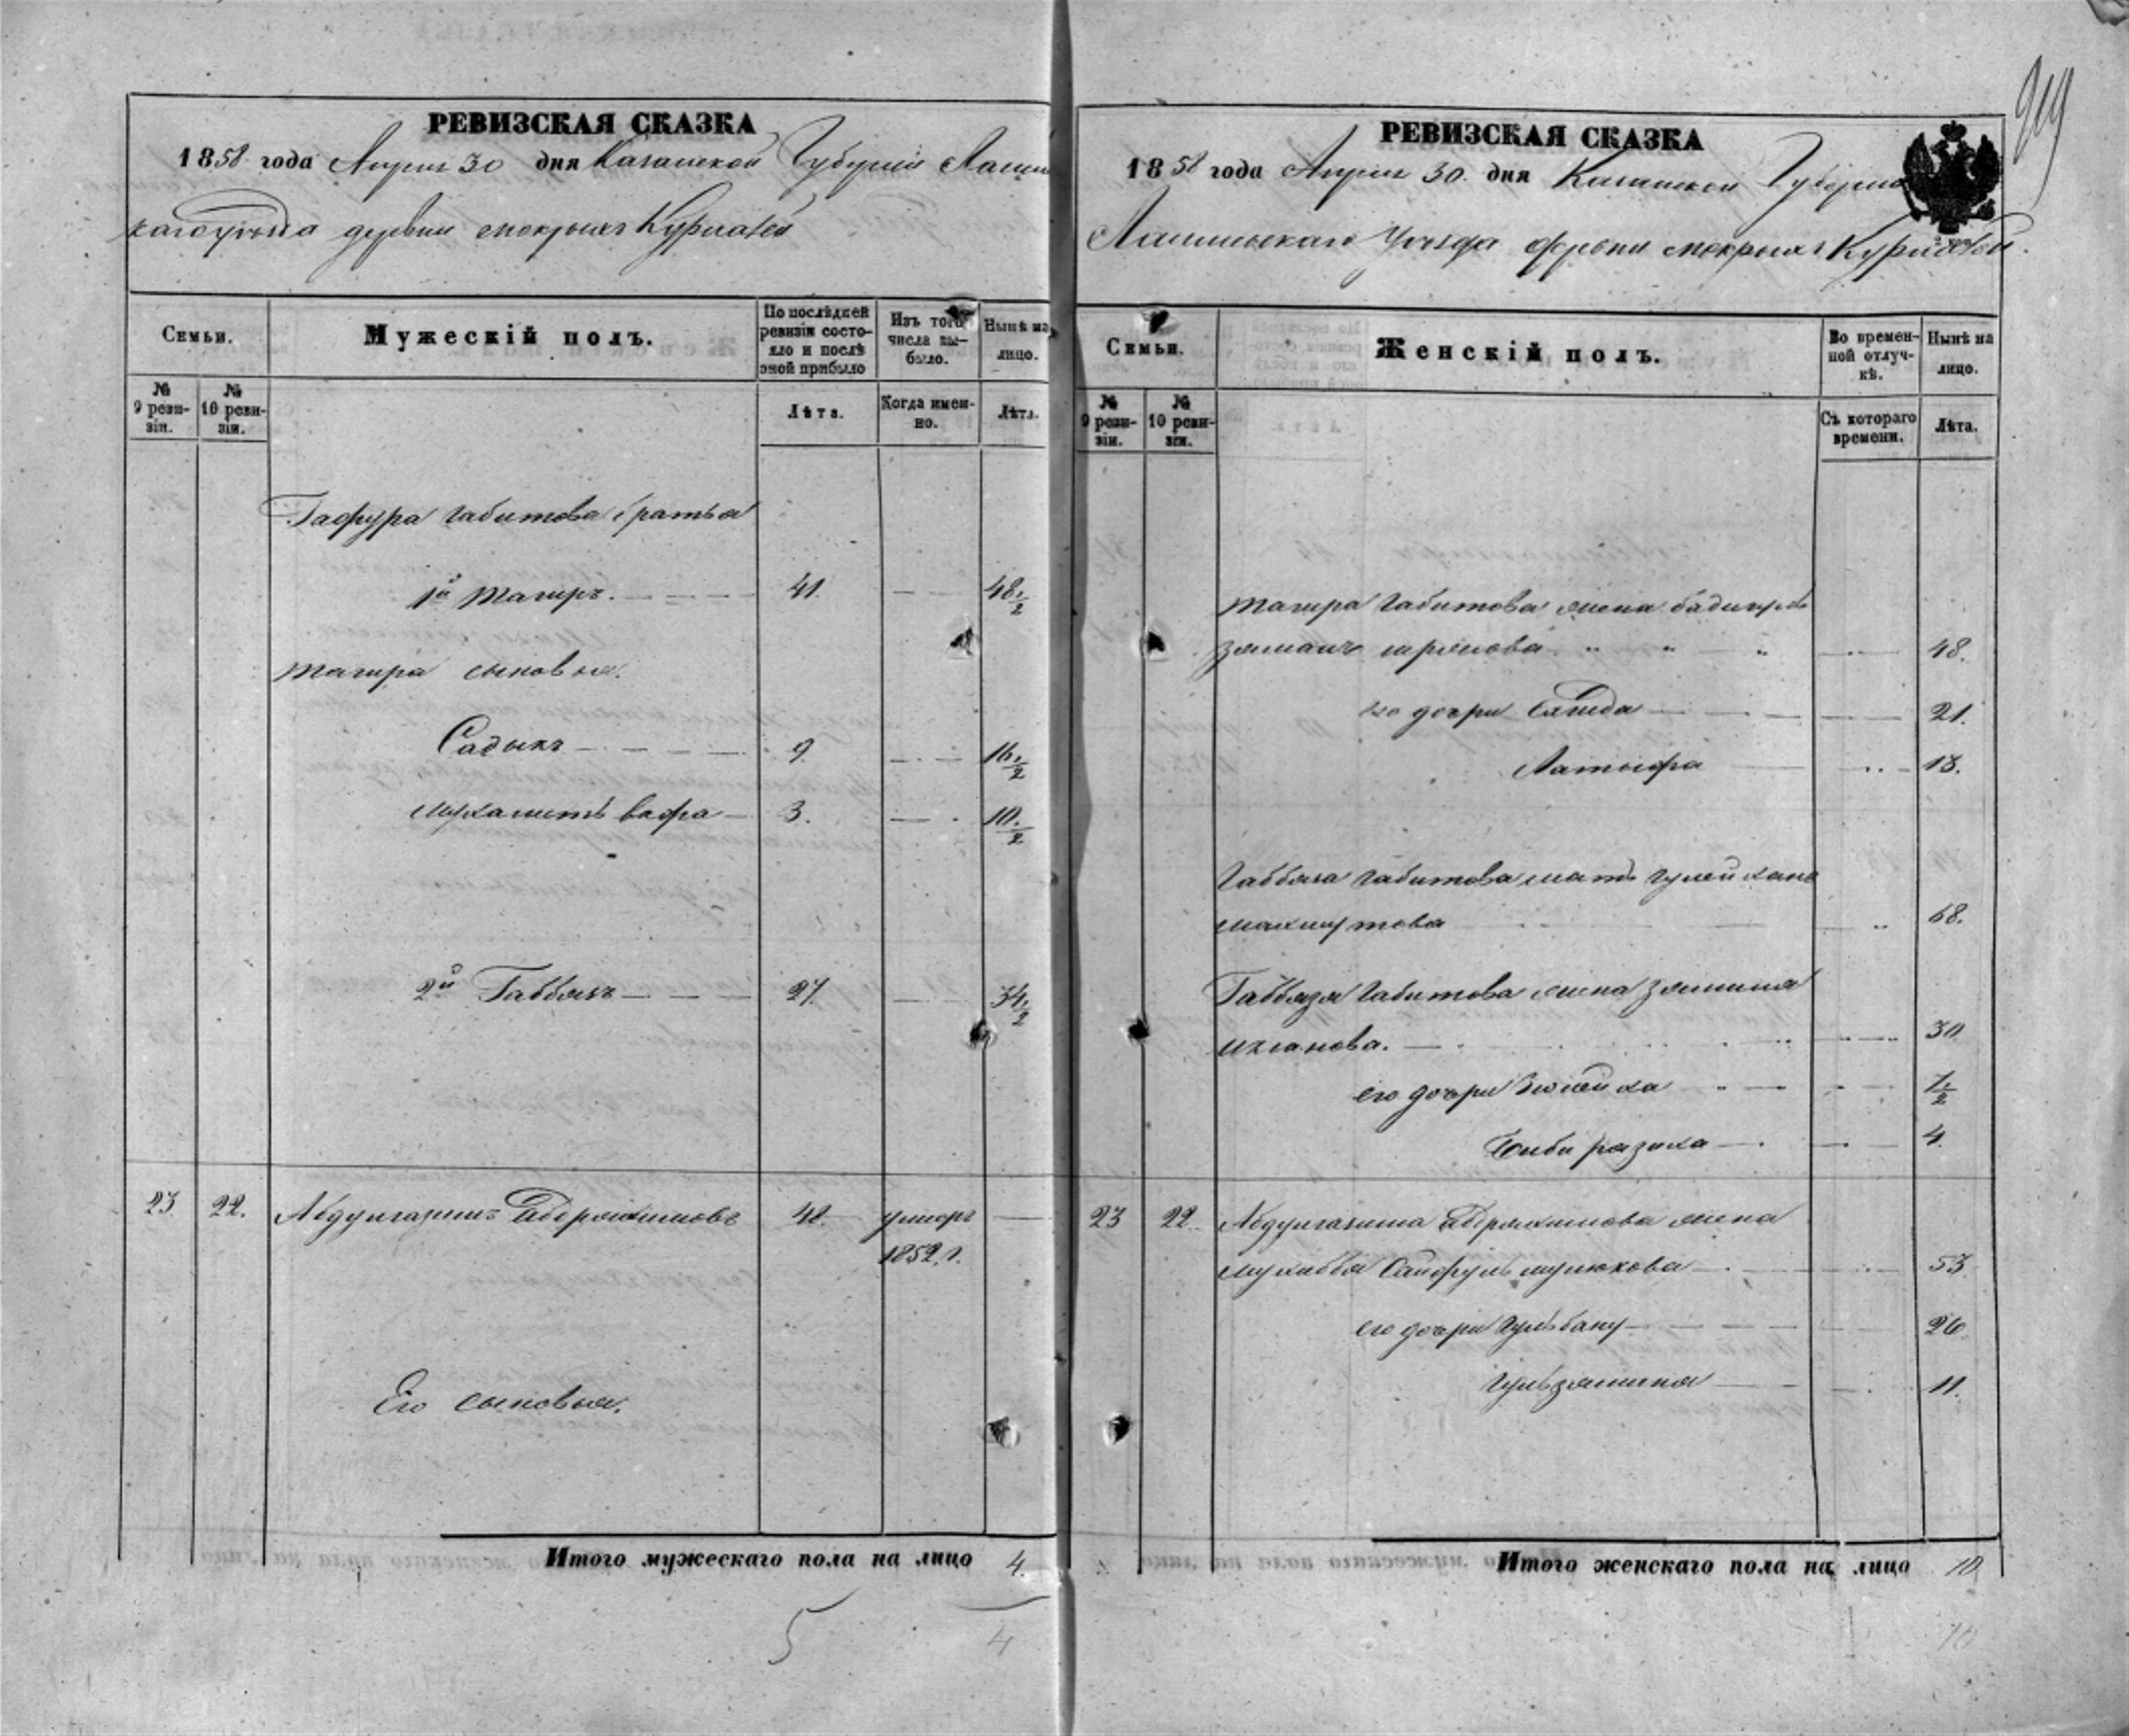 РЕВИЗСКАЯ СКАЗКА
1858 года Апреля 30 дня Казанской Губернии Лаиш
каго уезда деревни мокрыхъ Курналей
Семьи.
Мужескій полъ.
По послѣдней ревизіи состояло и послѣ оной прибыло
Изъ того числа выбыло.
Нынѣ на лицо.
№ 9 ревизіи.
№ 10 ревизіи.
Лѣта.
Когда именно.
Лѣта.
Гафура Габитова братья
1й Тагиръ. 41. 48 1/2
Тагира сыновья.
Садыкъ 9. 16 1/2
Мухаметъ вафа 3. 10 1/2
2й Габбязъ 27. 34 1/2
23 22. Абдулгазизъ Абдряхимовъ 48. умеръ
1852 г.
Его сыновья.
Итого мужескаго пола на лицо 4.
5 4
919
РЕВИЗСКАЯ СКАЗКА
1858 года Апреля 30. дня Казанской Губерніи
Лаишевскаго Уезда деревни мокрыхъ Курналей.
Семьи.
Женскій полъ.
Во временной отлучкѣ.
Нынѣ на лицо.
№ 9 ревизіи.
№ 10 ревизіи.
Съ котораго времени.
Лѣта.
Тагира Габитова жена бадигуль
зяманъ 48.
его дочри Саида 21.
Латыфа 18.
Габбяза Габитова мать
махмутова 68.
Габбяза Габитова жена
30
его дочри Зюлейха 7 1/2
Биби разиха 4.
23 22. Абдулгазиза Абдряхимова жена
Сайфульмулюкова 53
его дочри Гульбану 26
Гульзямиля 11.
Итого женскаго пола на лицо 10
10